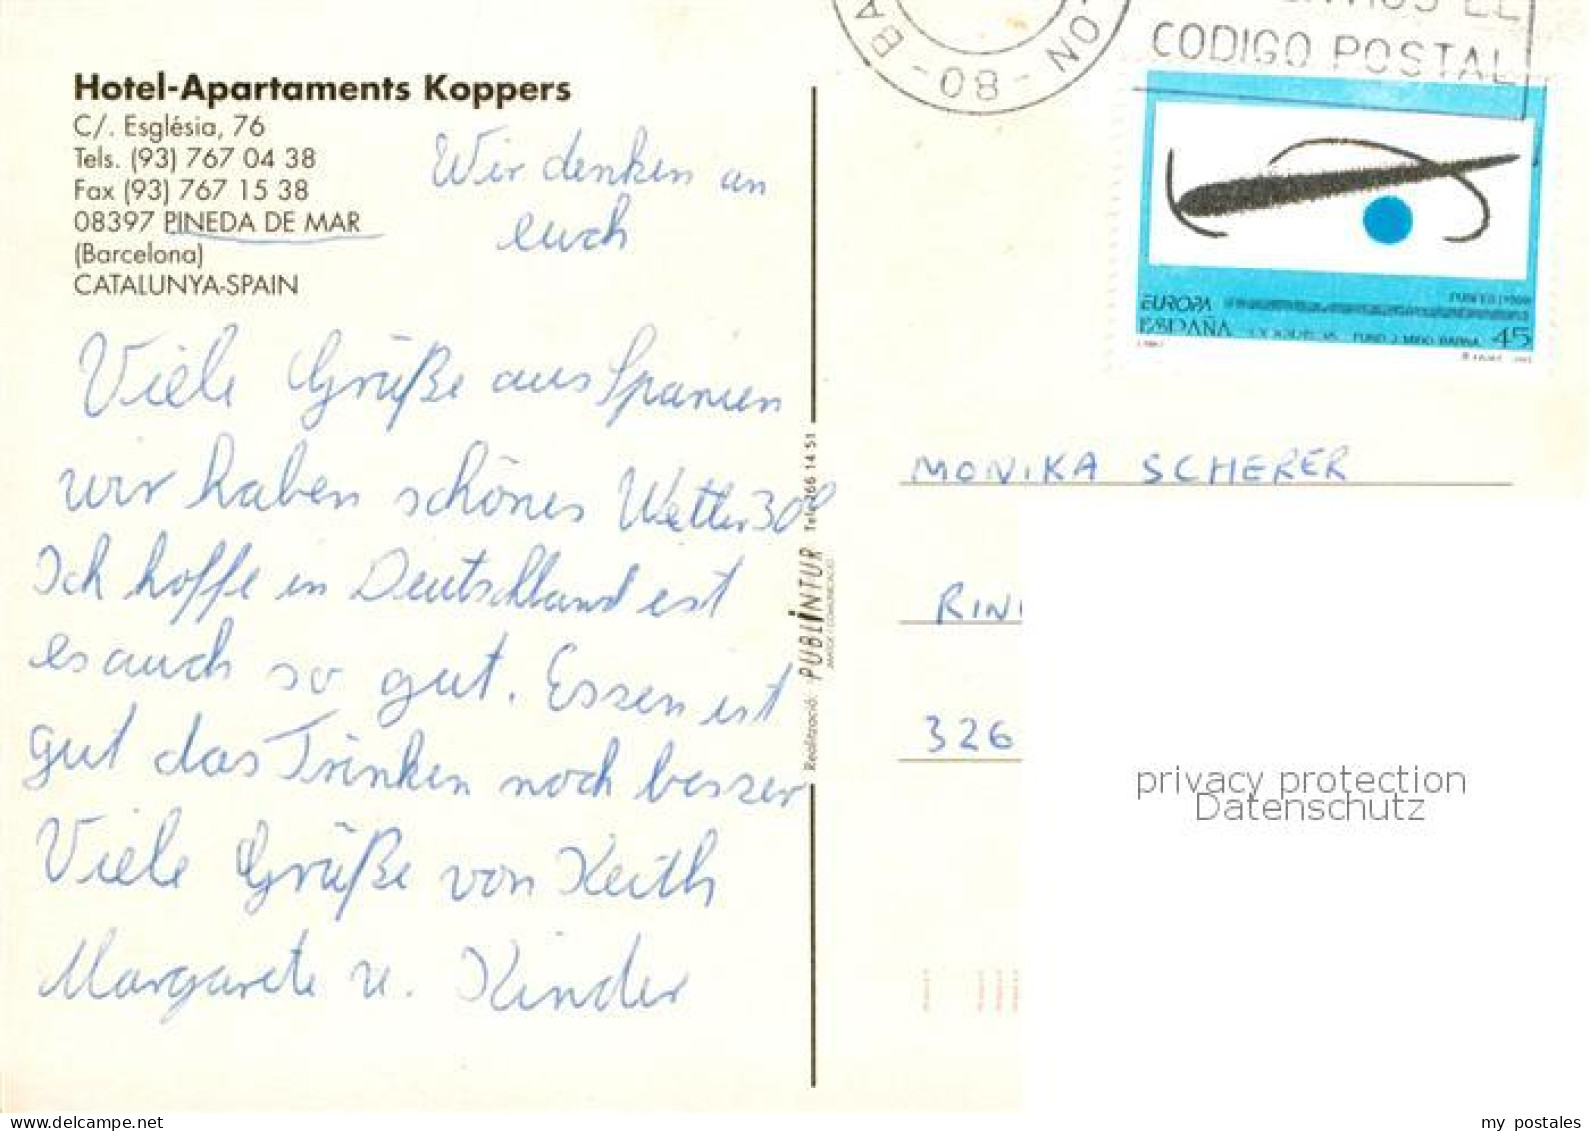 Hotel-Apartaments Koppers
C/. Església, 76
Tels. (93) 767 04 38
Fax (93) 767 15 38
08397 PINEDA DE MAR
(Barcelona)
CATALUNYA-SPAIN
Wir denken an
euch
Viele Grüße aus Spanien
wir haben schönes Wetter 30°
Ich hoffe in Deutschland ist
es auch so gut. Essen ist
gut das Trinken noch besser
Viele Grüße von Keith
Margarete u. Kinder
Realització: PUBLINTUR Tel. 266 14 51
80 - BA
ON -
CODIGO POSTAL
EUROPA
ESPAÑA
FUND J. MIRO BARNA 45
MONIKA SCHERER
RINI
326
privacy protection
Datenschutz
my postales